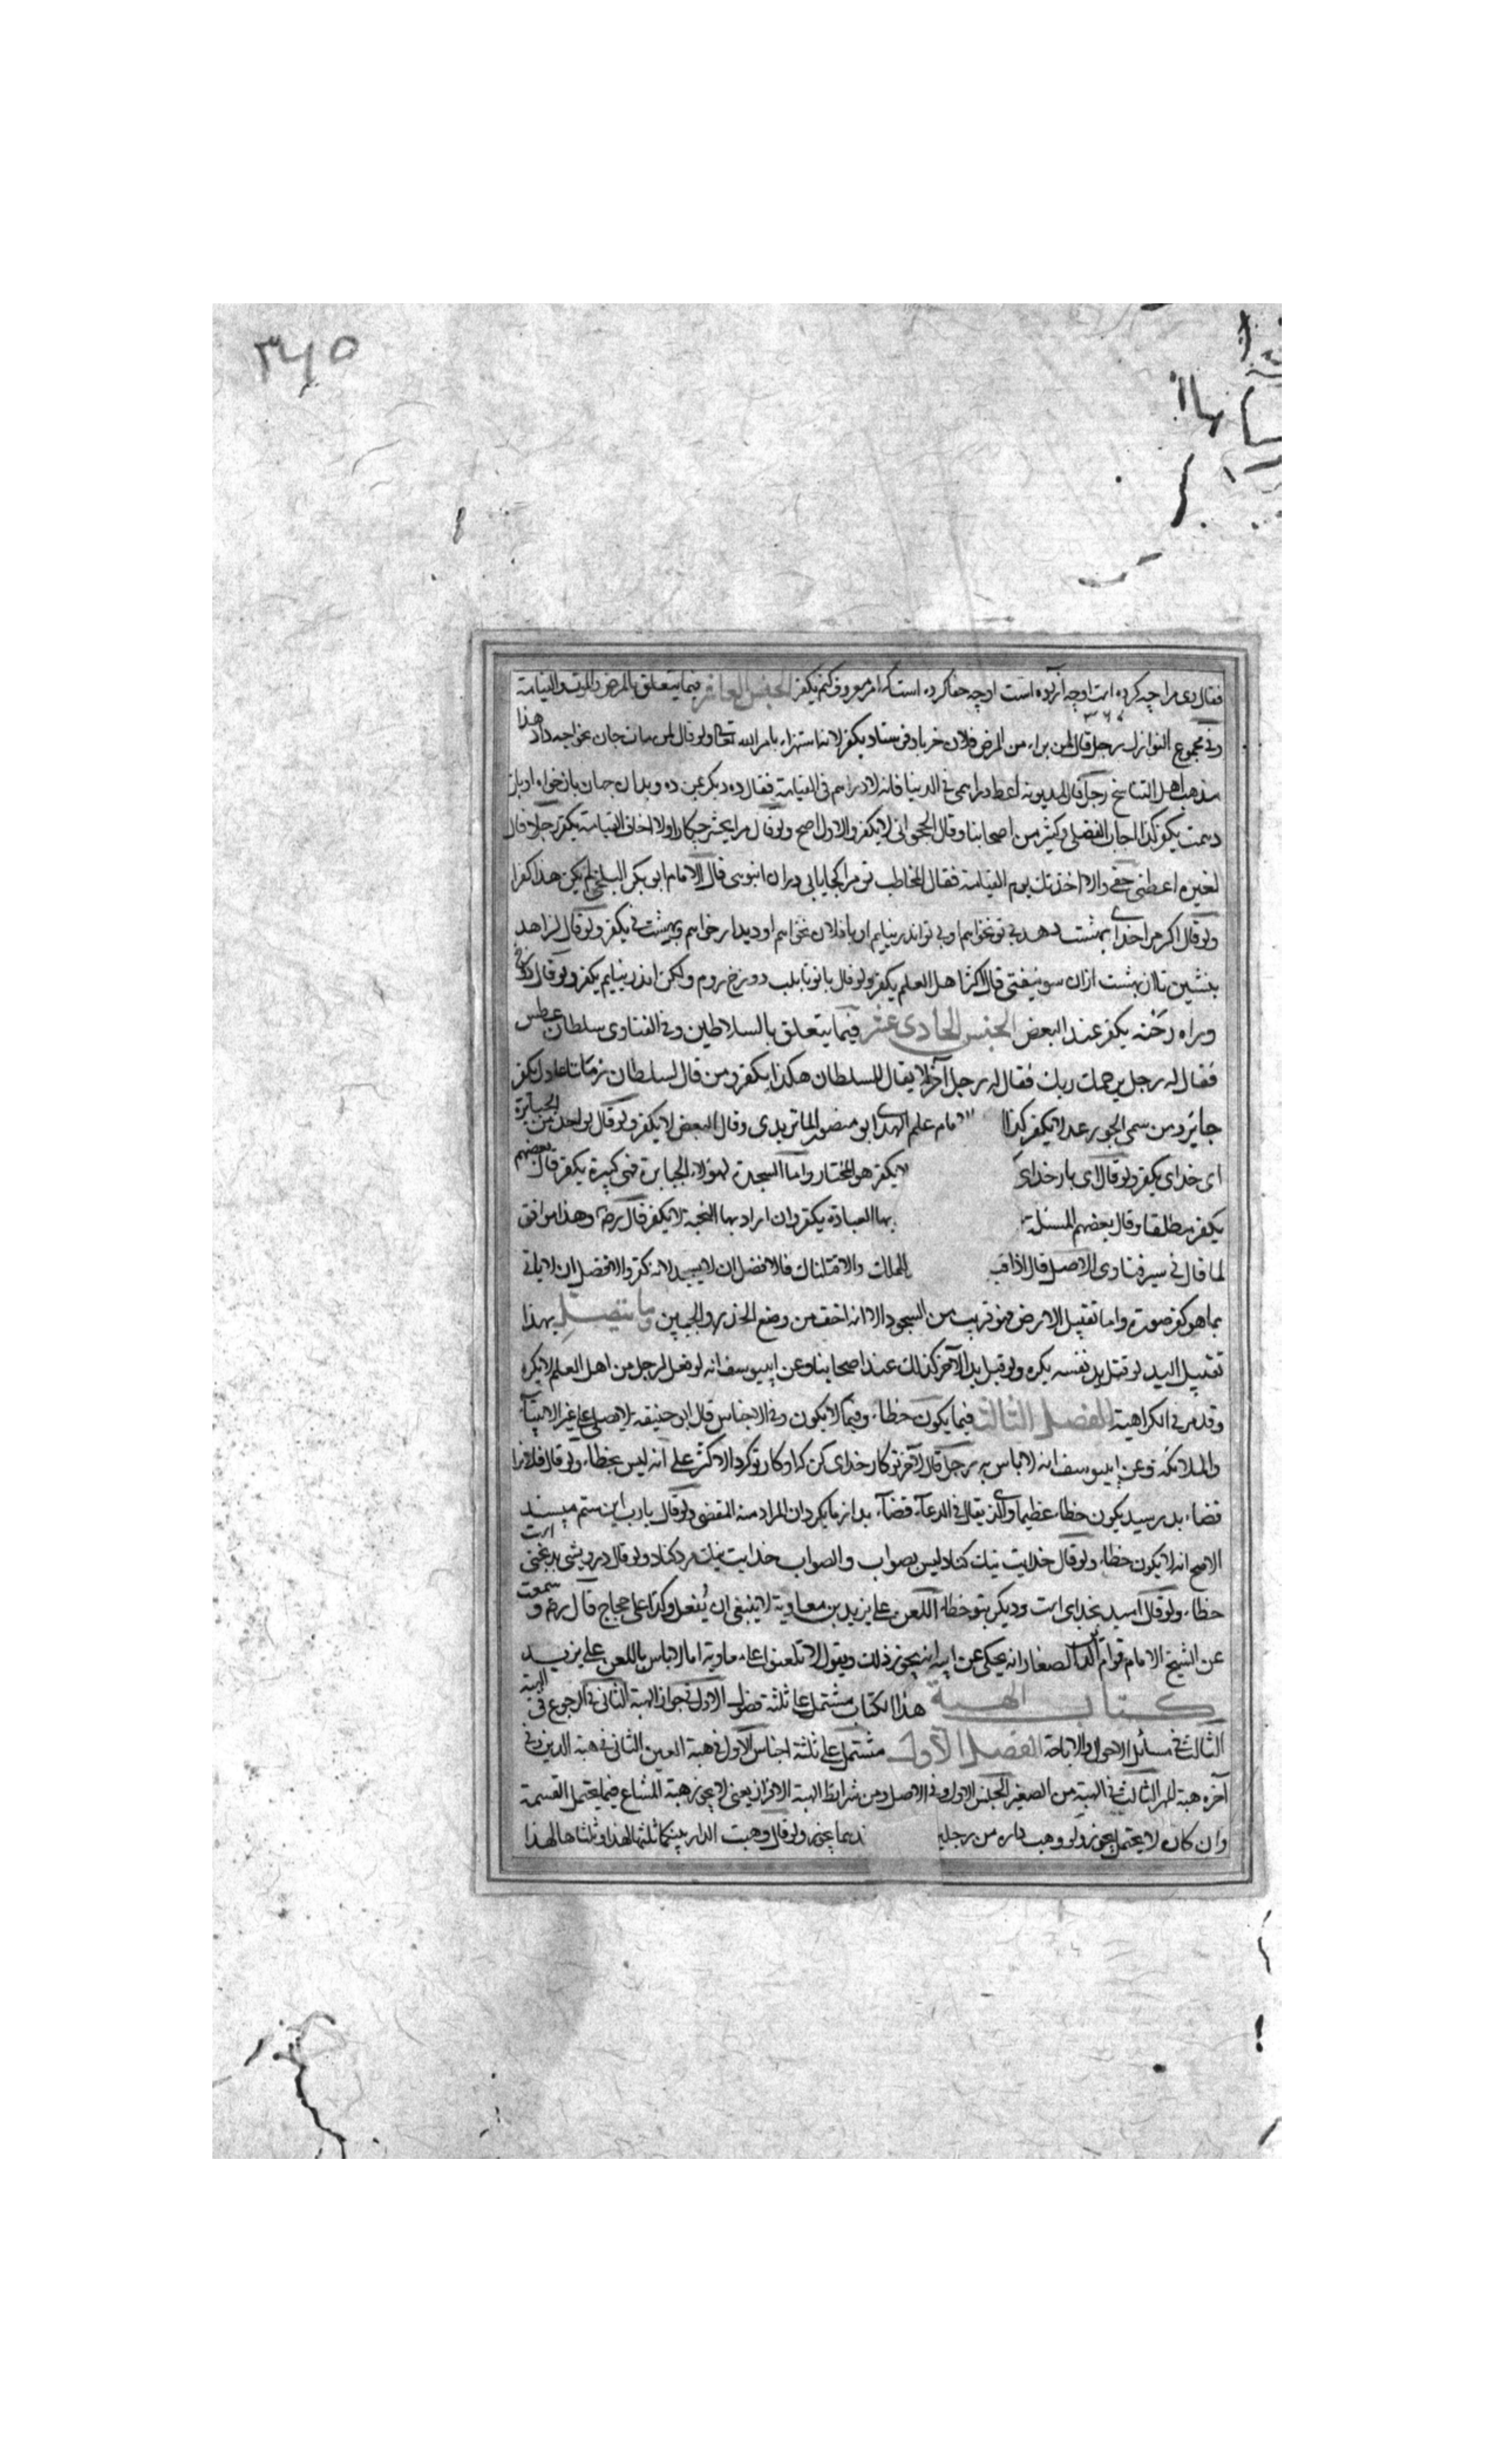 ٣٤٥
فقال وی مرا چه کرده است او چه آزرده است او چه جفا کرده است که امر معروف کنم یکفر الجنس العاشر فیما یتعلق بالمرض والموت والقیامة
وفی مجموع النوازل رجل قال لمن براء من المرض فلان خر باز فرستاد یکفر لانه استهزاء بامر الله تعالی ولو قال جان بخواجه داد هذا
مذهب اهل التناسخ رجل قال لمدیونه اعط دراهمی فی الدنیا فانه لا دراهم فی القیامة فقال ده دیکر بمن ده وبدان جهان باز خواه او باز
دهمت یکفر کذا اجاب الفضلی وکثیر من اصحابنا وقال لا یکفر والاول اصح ولو قال مرا بحشر چکار او لا اخاف القیامة یکفر رجل قال
لغیره اعطنی حقی والا اخذتك یوم القیامة فقال المخاطب تو مرا کجا یابی دران انبوهی قال الامام ابو بکر البلخی لم یکن هذا کفرا
ولو قال اکر مرا خدای بهشت دهد بی تو نخواهم او بی تو اندر نیایم او با فلان نخواهم او دیدار خواهم وبهشت نی یکفر ولو قال لزاهد
بنشین تا از بهشت ازان سو نیفتی قال اکثر اهل العلم یکفر ولو قال با تو تا بلب دوزخ روم ولکن اندر نیایم یکفر ولو قال
وراه رخنه یکفر عند البعض الجنس الحادی عشر فیما یتعلق بالسلاطین وفی الفتاوی سلطان عطس
فقال له رجل یرحمك ربك فقال له رجل آخر لا یقال للسلطان هکذا یکفر ومن قال لسلطان زماننا عادل یکفر
جائر ومن سمی الجور عدلا یکفر کذا الامام علم الهدی ابو منصور الماتریدی وقال البعض لا یکفر ولو قال لواحد من الجبابرة
ای خدای یکفر ولو قال ای بار خدای لا یکفر هو المختار واما السجدة لهؤلاء الجبابرة فهی کبیرة یکفر قال بعضهم
یکفر مطلقا وقال بعضهم المسئلة بها العبادة یکفر وان اراد بها التحیة لا یکفر قال رضه وهذا موافق
لما قال فی سیر فتاوی الاصل قال اذا قیـ للملك والا قتلناك فالافضل ان لا یسجد لانه کفر والافضل ان لا یاتی
بما هو کفر صورة واما تقبیل الارض فهو قریب من السجود الا انه اخف من وضع الخد والجبین وما یتصل بهذا
تقبیل الید لو قبل ید نفسه یکره ولو قبل ید الآخر کذلك عند اصحابنا وعن ابی یوسف انه لو فعل لرجل من اهل العلم لا یکره
وقد مر فی الکراهیة الفصل الثالث فیما یکون خطاء وفیما لا یکون وفی الاجناس قال ابو حنیفة لا یصلی علی غیر الانبیاء
والملائکة وعن ابی یوسف انه لا باس به رجل قال لآخر تو کار خدای کن کار تو کرد الاکثر علی انه لیس بخطاء ولو قال فلانرا
قضاء بد رسید یکون خطاء عظیما والذی یقال فی الدعاء قضاء بد از ما بکردان المراد منه المقضی ولو قال یا رب این ستم مپسند
الاصح انه لا یکون خطاء ولو قال خدایت نیك کناد لیس بصواب والصواب خدایت نیك مرد کناد ولو قال درویشی بدبختی است
خطاء ولو قال امید بخدای است ودیکر بتو خطاء اللعن علی یزید بن معاویة لا ینبغی ان یفعل وکذا علی حجاج قال رضه وسمعت
عن الشیخ الامام قوام الدین الصفار انه یحکی عن ابیه انه یجوز ذلك ویقول لا تلعنوا علی معاویة اما لا باس باللعن علی یزید
کتاب الهبة هذا الکتاب مشتمل علی ثلثة فصول الاول فی جواز الهبة الثانی فی الرجوع فی الهبة
الثالث فی مسائل الاحوال والاباحة الفصل الاول مشتمل علی ثلثة اجناس الاول فی هبة العین الثانی فی هبة الدین وفی
آخره هبة المهر الثالث فی الهبة من الصغیر الجنس الاول وفی الاصل ومن شرائط الهبة الافراز یعنی لا یجوز هبة المشاع فیما یحتمل القسمة
وان کان لا یحتمل یجوز ولو وهب داره من رجلین یجوز ولو قال وهبت الدار بینکما ثلثها لهذا وثلثاها لهذا